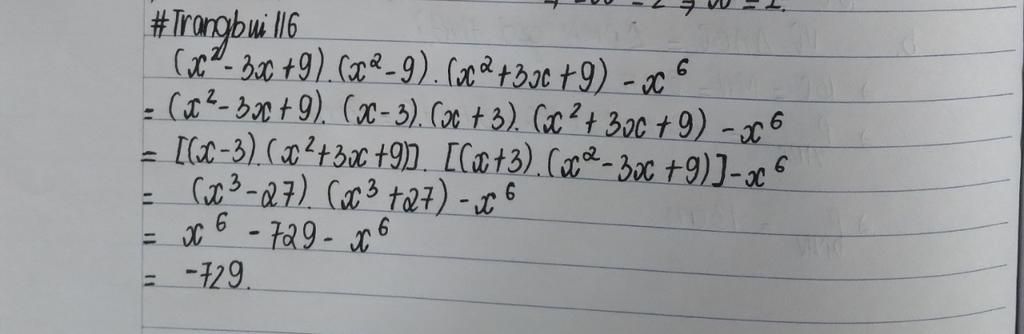 #Trangbui116
(x² - 3x + 9). (x² - 9). (x² + 3x + 9) - x⁶
= (x² - 3x + 9). (x - 3). (x + 3). (x² + 3x + 9) - x⁶
= [(x - 3). (x² + 3x + 9)]. [(x + 3). (x² - 3x + 9)] - x⁶
= (x³ - 27). (x³ + 27) - x⁶
= x⁶ - 729 - x⁶
= -729.